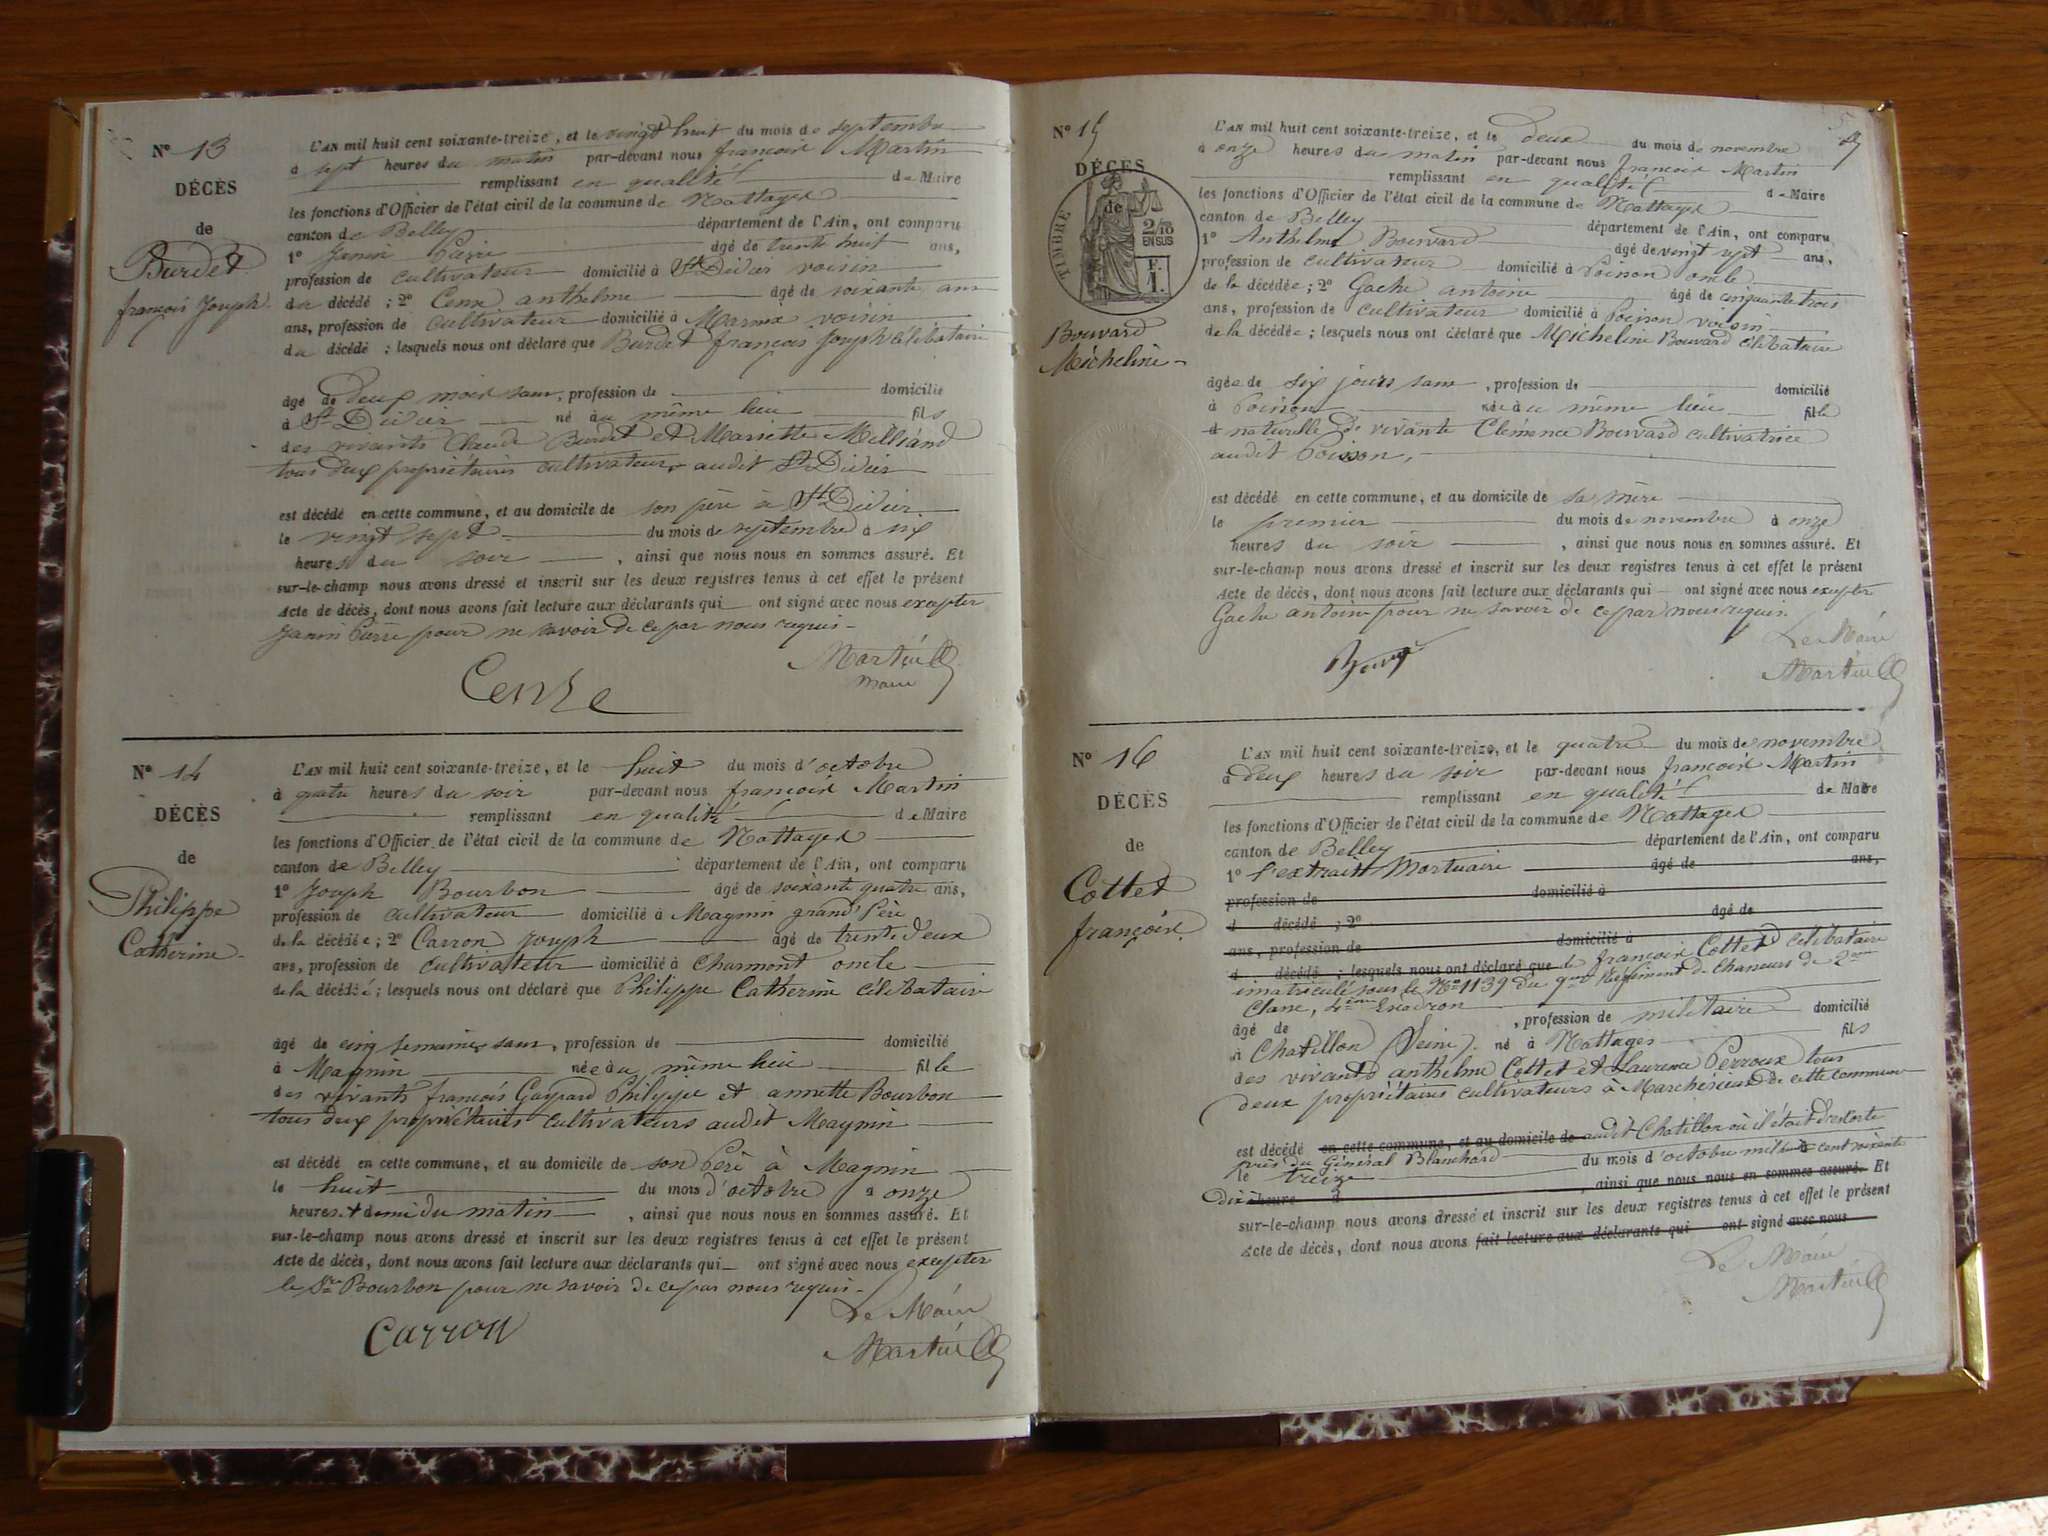 N° 13
DÉCÈS
de
Burdet
françois Joseph
L'AN mil huit cent soixante-treize, et le vingt huit du mois de septembre
à sept heures du matin par-devant nous françois Martin
remplissant en qualité de Maire
les fonctions d'Officier de l'état civil de la commune de Nattages
canton de Belley département de l'Ain, ont comparu
1° Janin Pierre âgé de trente huit ans,
profession de cultivateur domicilié à St Didier voisin
du décédé ; 2° Cenre anthelme âgé de soixante ans
ans, profession de cultivateur domicilié à voisin
du décédé ; lesquels nous ont déclaré que Burdet françois Joseph célibataire
âgé de Deux mois sans , profession de domicilié
à St Didier né au même lieu fils
des vivants Claude Burdet et Mariette Milliand
tous deux propriétaires cultivateurs audit St Didier
est décédé en cette commune, et au domicile de son père à St Didier
le vingt sept du mois de septembre à six
heures du soir , ainsi que nous nous en sommes assuré. Et
sur-le-champ nous avons dressé et inscrit sur les deux registres tenus à cet effet le présent
Acte de décès, dont nous avons fait lecture aux déclarants qui ont signé avec nous excepter
Janin Pierre pour ne savoir de ce par nous requis
Martin
maire
Cenre
N° 14
DÉCÈS
de
Philippe
Catherine
L'AN mil huit cent soixante-treize, et le huit du mois d'octobre
à quatre heures du soir par-devant nous françois Martin
remplissant en qualité de Maire
les fonctions d'Officier de l'état civil de la commune de Nattages
canton de Belley département de l'Ain, ont comparu
1° Joseph Bourbon âgé de soixante quatre ans,
profession de cultivateur domicilié à Magnin grand Père
de la décédée ; 2° Carron Joseph âgé de trente deux
ans, profession de cultivateur domicilié à Charmont oncle
de la décédée ; lesquels nous ont déclaré que Philippe Catherine Célibataire
âgé de cinq semaines sans , profession de domicilié
à Magnin née au même lieu fille
des vivants françois Gaspard Philippe et annette Bourbon
tous deux propriétaires cultivateurs audit Magnin
est décédé en cette commune, et au domicile de son Père à Magnin
le huit du mois d'octobre à onze
heures et demi du matin , ainsi que nous nous en sommes assuré. Et
sur-le-champ nous avons dressé et inscrit sur les deux registres tenus à cet effet le présent
Acte de décès, dont nous avons fait lecture aux déclarants qui ont signé avec nous excepter
le Sr Bourbon pour ne savoir de ce par nous requis
Le Maire
Martin
Carron
N° 15
DÉCÈS
de
TIMBRE
2/10
EN SUS
F.
1.
Bouvard
Micheline
L'AN mil huit cent soixante-treize, et le deux du mois de novembre
à onze heures du matin par-devant nous françois Martin
remplissant en qualité de Maire
les fonctions d'Officier de l'état civil de la commune de Nattages
canton de Belley département de l'Ain, ont comparu
1° Anthelme Bouvard âgé de vingt sept ans,
profession de cultivateur domicilié à Poisson oncle
de la décédée ; 2° Gache antoine âgé de cinquante trois
ans, profession de cultivateur domicilié à Poisson voisin
de la décédée ; lesquels nous ont déclaré que Micheline Bouvard célibataire
âgée de six jours sans , profession de domicilié
à Poisson née au même lieu fille
naturelle de vivante Clémence Bouvard cultivatrice
audit Poisson,
est décédé en cette commune, et au domicile de sa mère
le premier du mois de novembre à onze
heures du soir , ainsi que nous nous en sommes assuré. Et
sur-le-champ nous avons dressé et inscrit sur les deux registres tenus à cet effet le présent
Acte de décès, dont nous avons fait lecture aux déclarants qui ont signé avec nous excepter
Gache antoine pour ne savoir de ce par nous requis.
Le Maire
Martin
N° 16
DÉCÈS
de
Cottet
françois
L'AN mil huit cent soixante-treize, et le quatre du mois de novembre
à deux heures du soir par-devant nous françois Martin
remplissant en qualité de Maire
les fonctions d'Officier de l'état civil de la commune de Nattages
canton de Belley département de l'Ain, ont comparu
1° l'extrait Mortuaire âgé de ans,
profession de domicilié à
d décédé ; 2° âgé de
ans, profession de domicilié à
d décédé ; lesquels nous ont déclaré que de françois Cottet célibataire
imatriculé sous le No 1139 du 9me Régiment de Chasseurs de 2me
Classe, 4ème Escadron
âgé de , profession de militaire domicilié
à Chatillon (Seine) né à Nattages fils
des vivants anthelme Cottet et Laurence Perroux tous
deux propriétaires cultivateurs à Marchérieux de cette commune
est décédé en cette commune, et au domicile de audit Chatillon où il était d'escorte
près du Général Blanchard du mois d'octobre mil huit cent soixante
le treize , ainsi que nous nous en sommes assuré. Et
dix heure à
sur-le-champ nous avons dressé et inscrit sur les deux registres tenus à cet effet le présent
Acte de décès, dont nous avons fait lecture aux déclarants qui ont signé avec nous
Le Maire
Martin